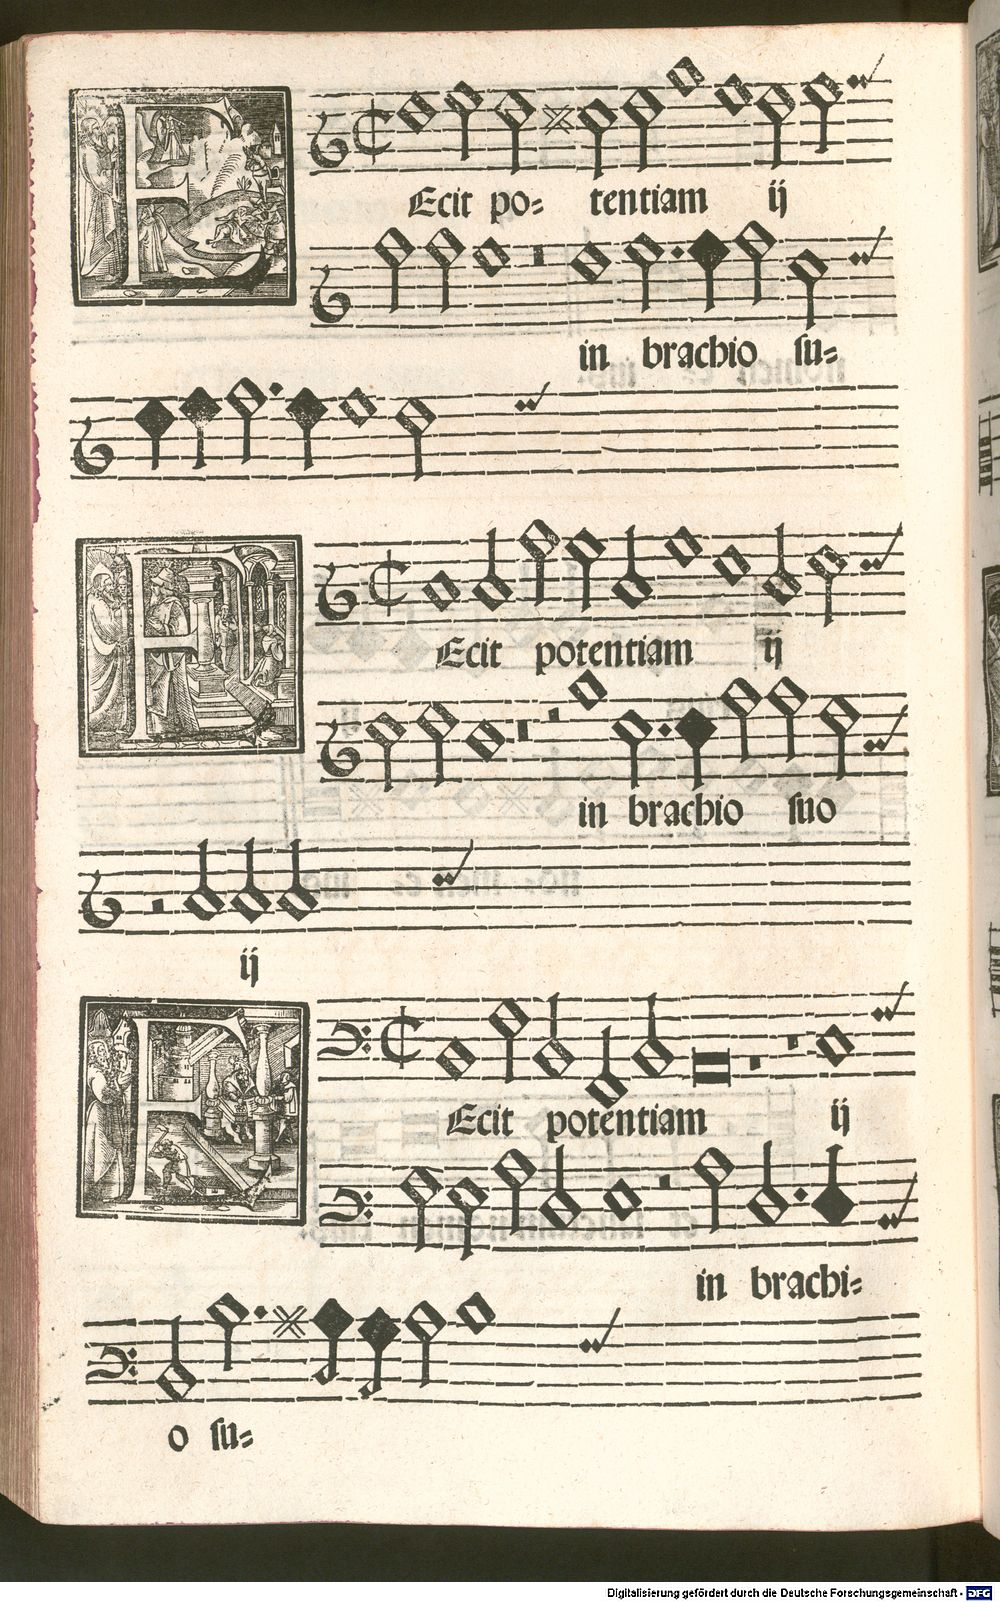 FEcit po= tentiam ij
in brachio su=
FEcit potentiam ij
in brachio suo
ij
FEcit potentiam ij
in brachi=
o su=
Digitalisierung gefördert durch die Deutsche Forschungsgemeinschaft - DFG